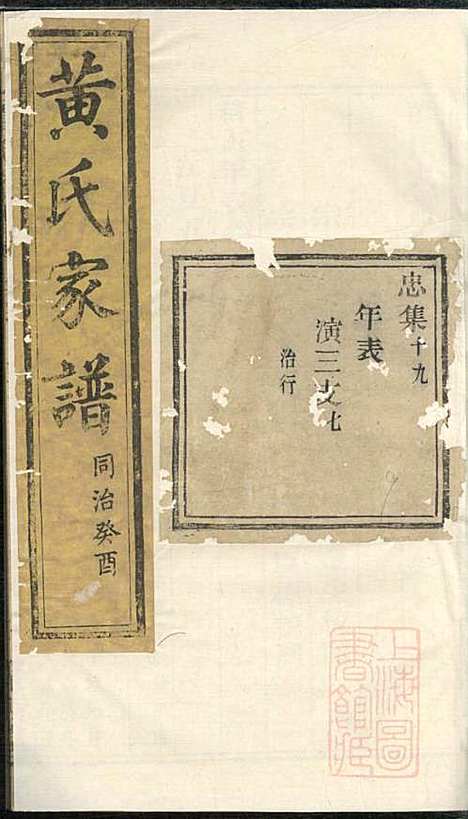 黄氏家譜
同治癸酉
忠集十九
年表
演三支
治行
上海圖
書館藏